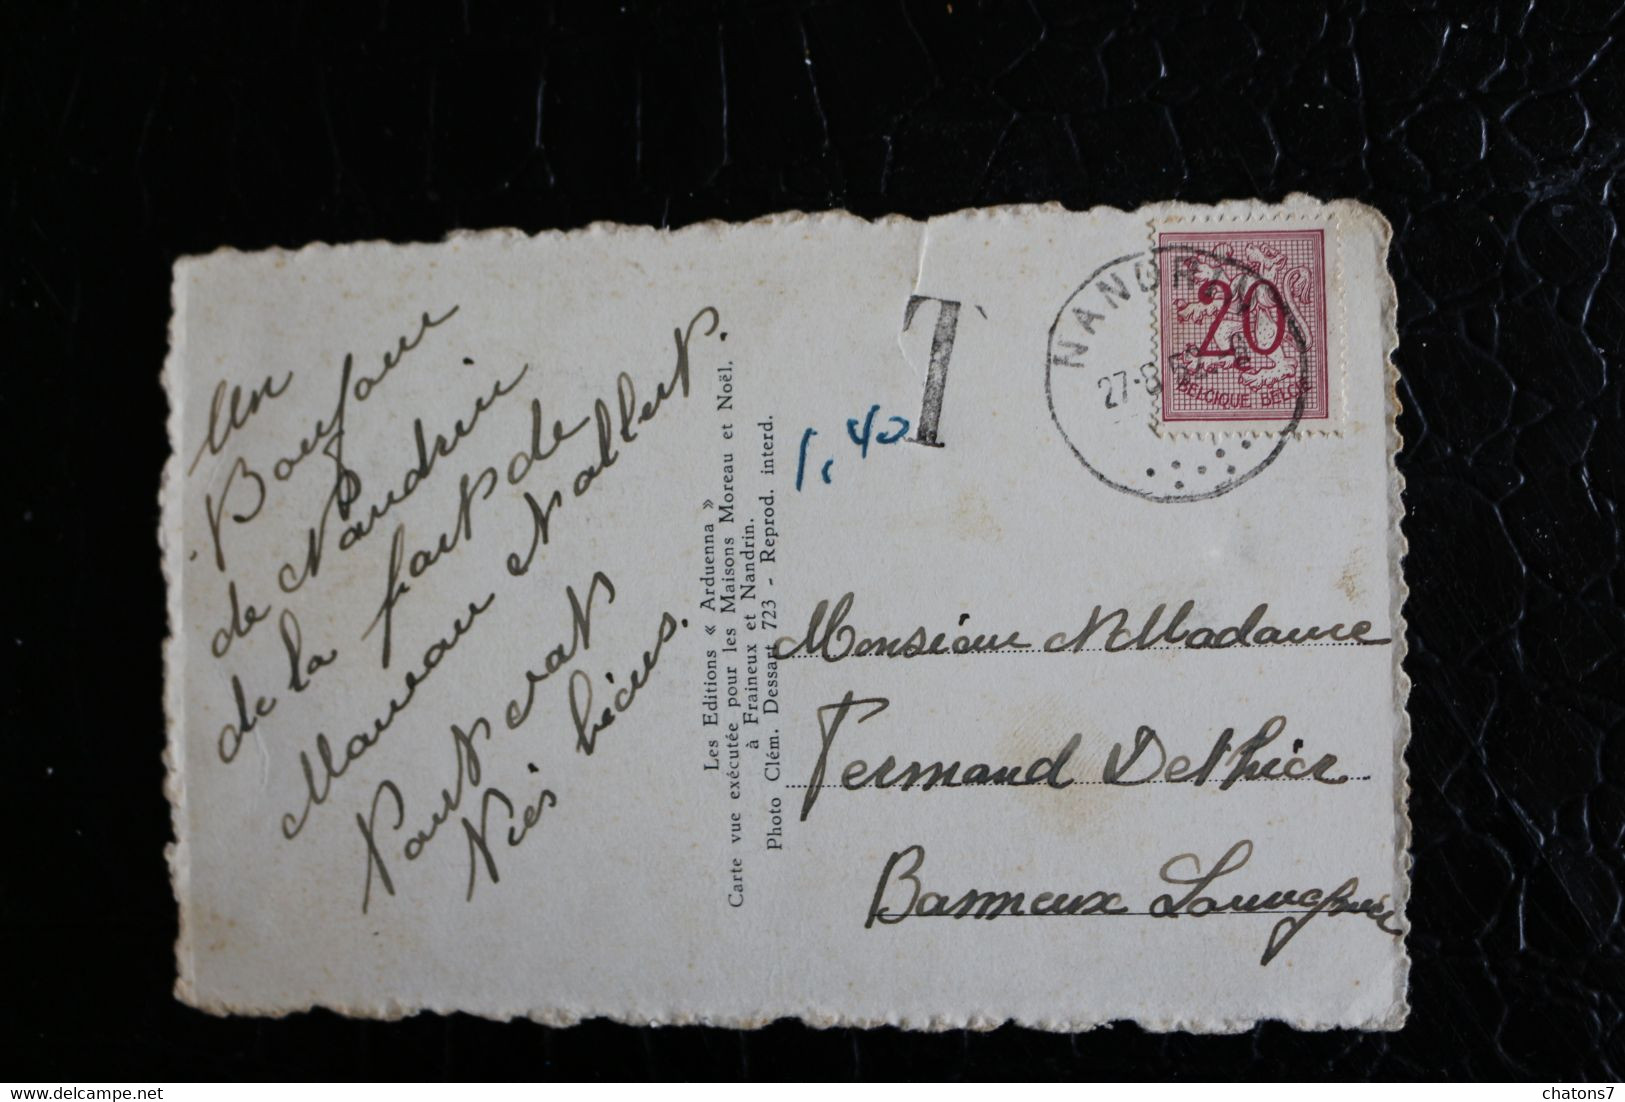 Un
Bonjour
de Nandrin
de la part de
Maman Nallert.
Tout va
très bien.
Les Editions « Arduenna »
Carte vue exécutée pour les Maisons Moreau et Noël.
à Fraineux et Nandrin.
Photo Clém. Dessart 723 - Reprod. interd.
T
1,40
NANDRIN
27-8
20
BELGIQUE BELGIE
Monsieur Madame
Fernand Dethier
Banneux Louveigné
delcampe.net
chatons7